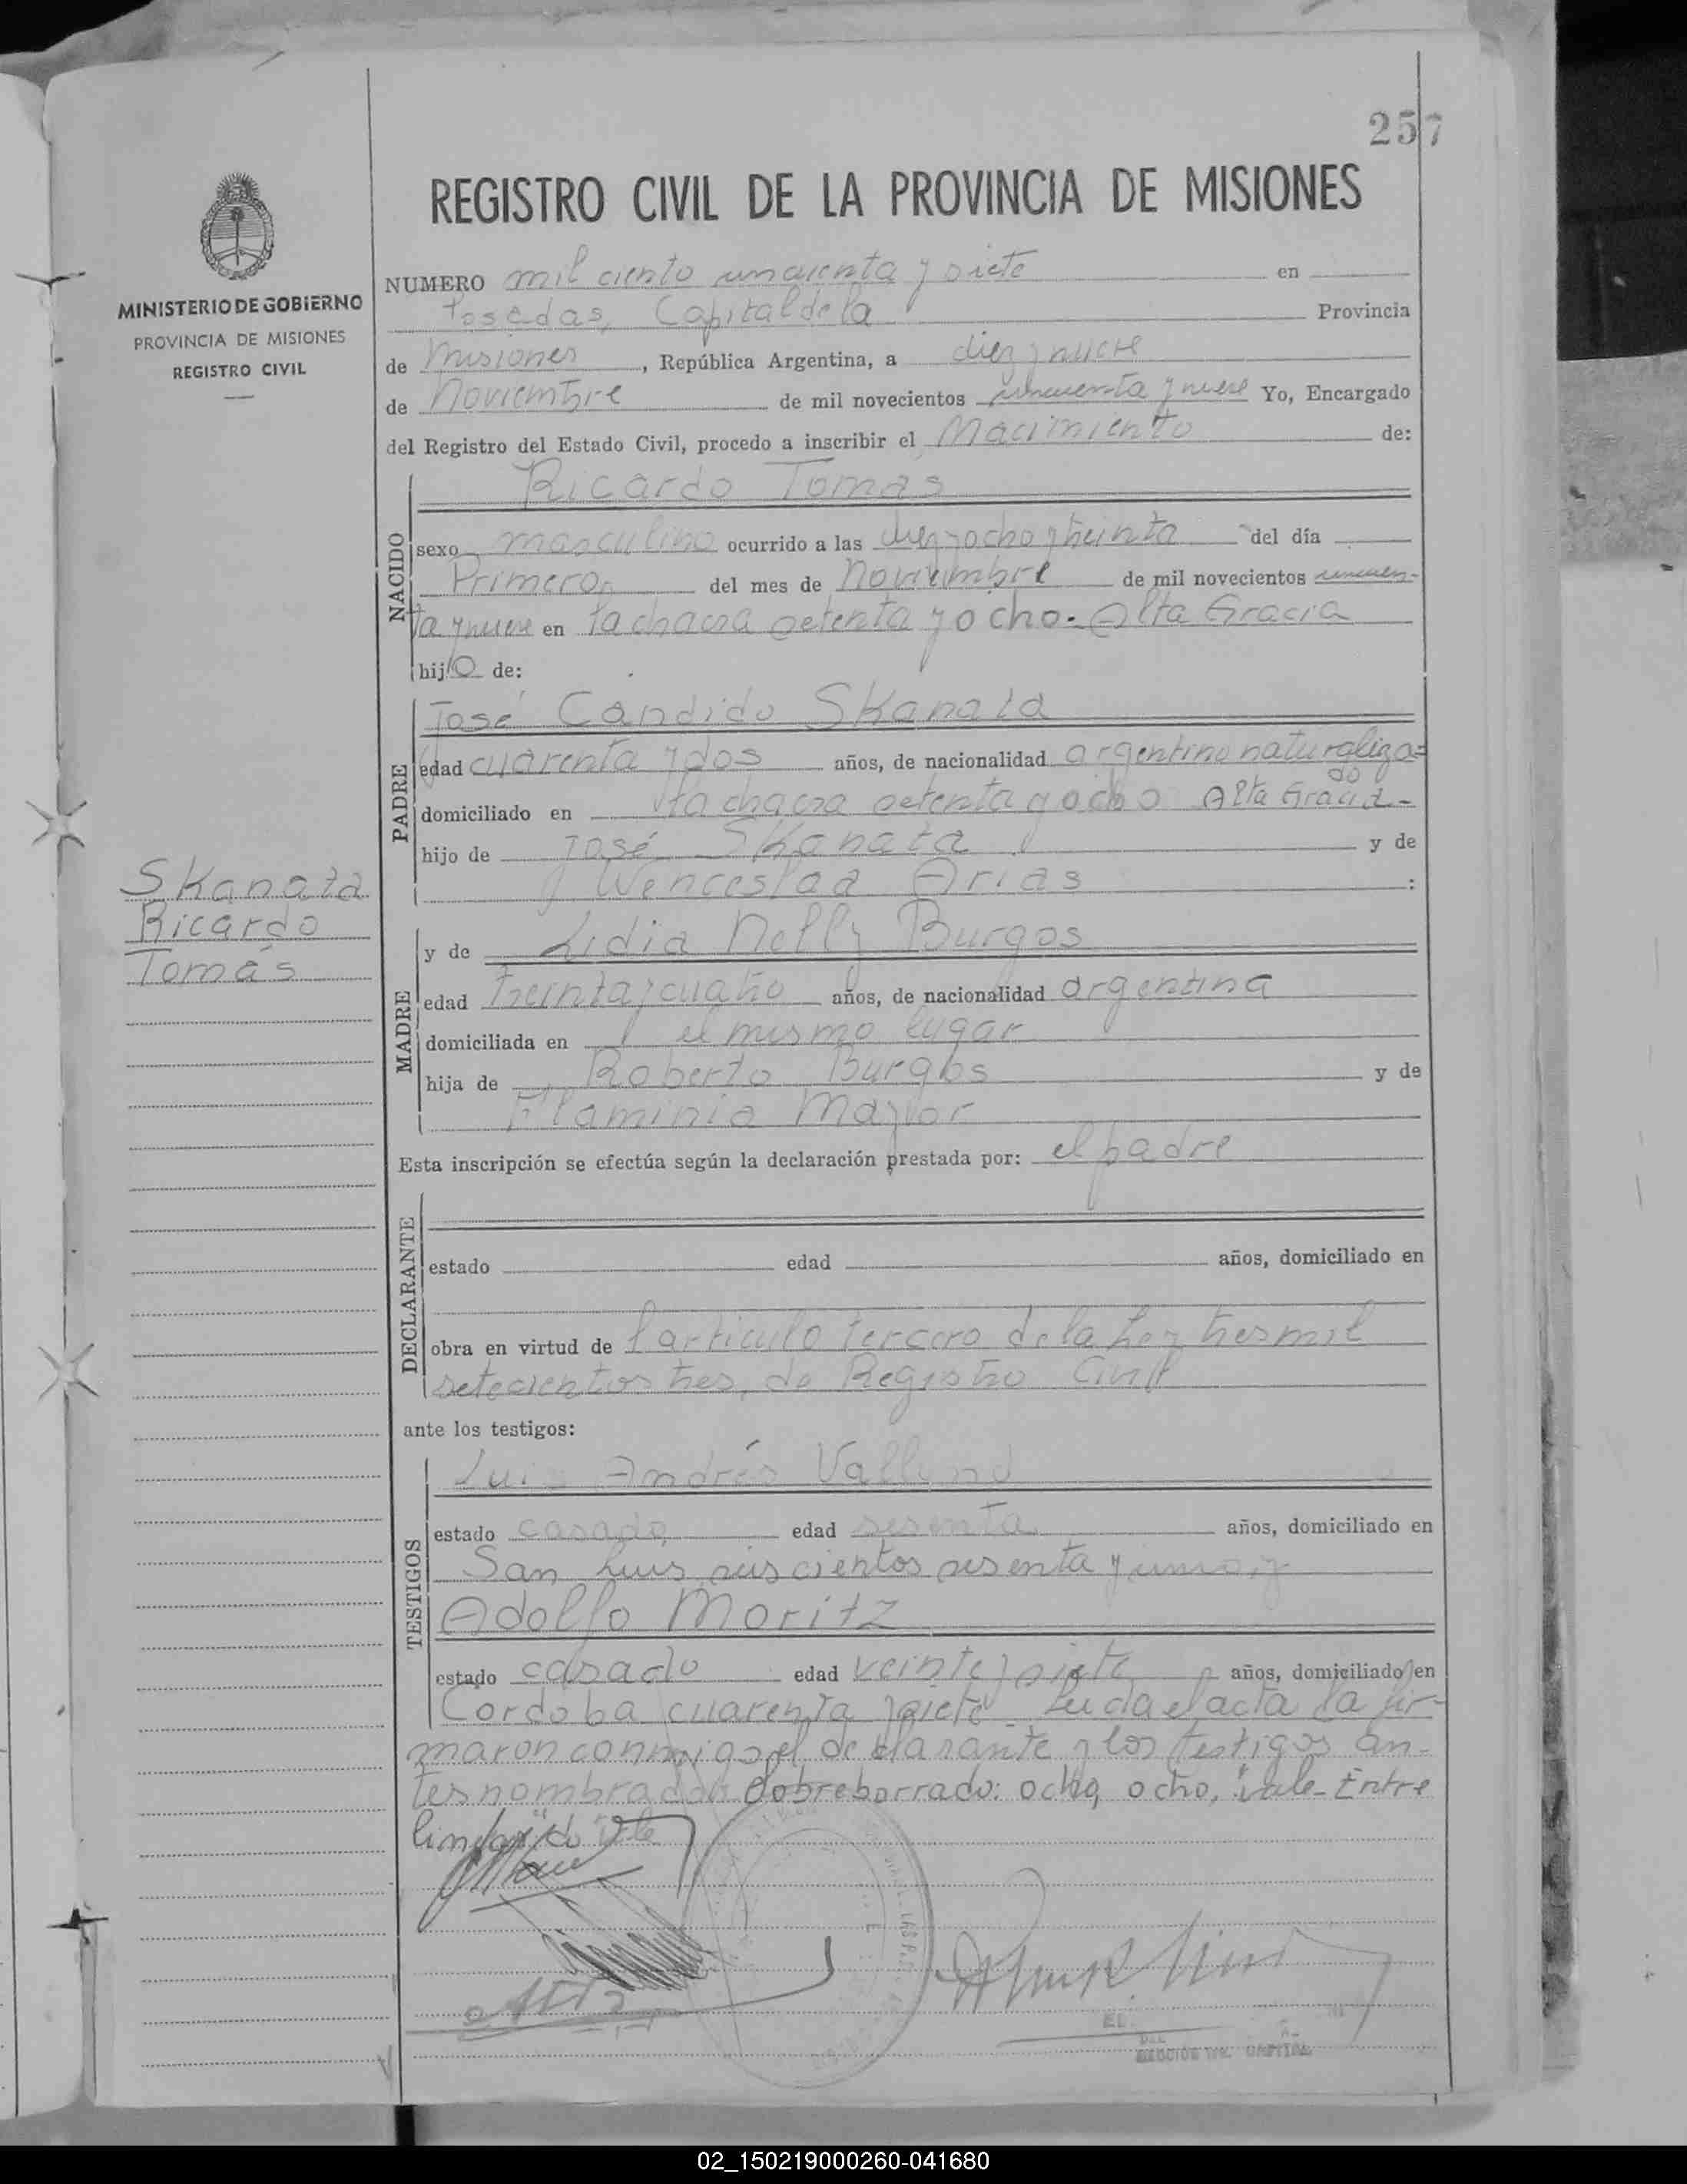 257
REGISTRO CIVIL DE LA PROVINCIA DE MISIONES
MINISTERIO DE GOBIERNO
PROVINCIA DE MISIONES
REGISTRO CIVIL
NUMERO mil ciento cincuenta y siete en
Posadas, Capital de la Provincia
de Misiones, República Argentina, a diez y nueve
de Noviembre de mil novecientos cincuenta y nueve Yo, Encargado
del Registro del Estado Civil, procedo a inscribir el Nacimiento de:
Ricardo Tomas
NACIDO
sexo masculino ocurrido a las diez y ocho y treinta del día
Primero del mes de Noviembre de mil novecientos cincuen-
ta y nueve en la chacra setenta y ocho. Alta Gracia
hijo de:
José Candido Skanata
PADRE
edad cuarenta y dos años, de nacionalidad argentino naturaliza=
do
domiciliado en la chacra setenta y ocho Alta Gracia-
hijo de José Skanata y de
Wenceslaa Arias :
Skanata
Ricardo
Tomás
y de Lidia Nelly Burgos
MADRE
edad treinta y cuatro años, de nacionalidad argentina
domiciliada en el mismo lugar
hija de Roberto Burgos y de
Flaminia
Esta inscripción se efectúa según la declaración prestada por: el padre
DECLARANTE
estado edad años, domiciliado en
obra en virtud de l artículo tercero de la Ley tres mil
setecientos tres, de Registro Civil
ante los testigos:
Luis Andrés
TESTIGOS
estado casado edad sesenta años, domiciliado en
San Luis seis cientos sesenta y uno, y
Adolfo Moritz
estado casado edad veinte y siete años, domiciliado en
Cordoba cuarenta y siete Leida el acta la fir-
maron conmigo, el declarante y los testigos an-
tes nombrados. Sobreborrado: ocho, ocho, vale- Entre
lineado
02_150219000260-041680